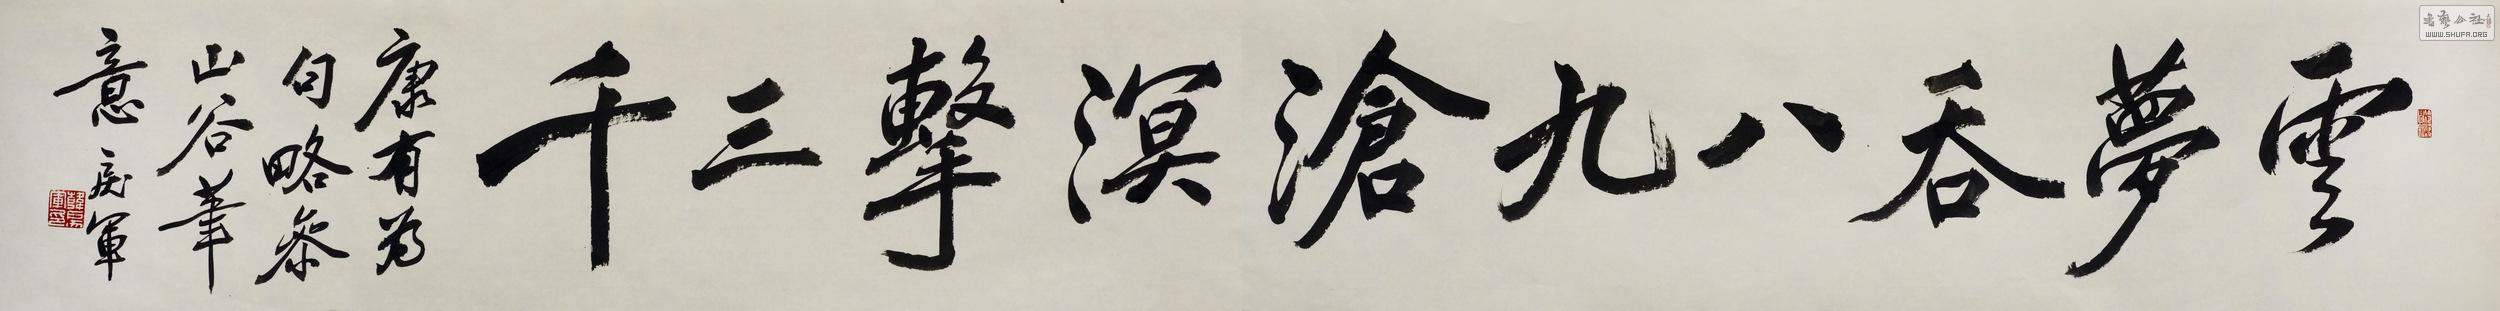 雲夢吞八九滄溟擊三千
康有為
句略參
山谷筆
意 虎軍
書藝公社
WWW.SHUFA.ORG